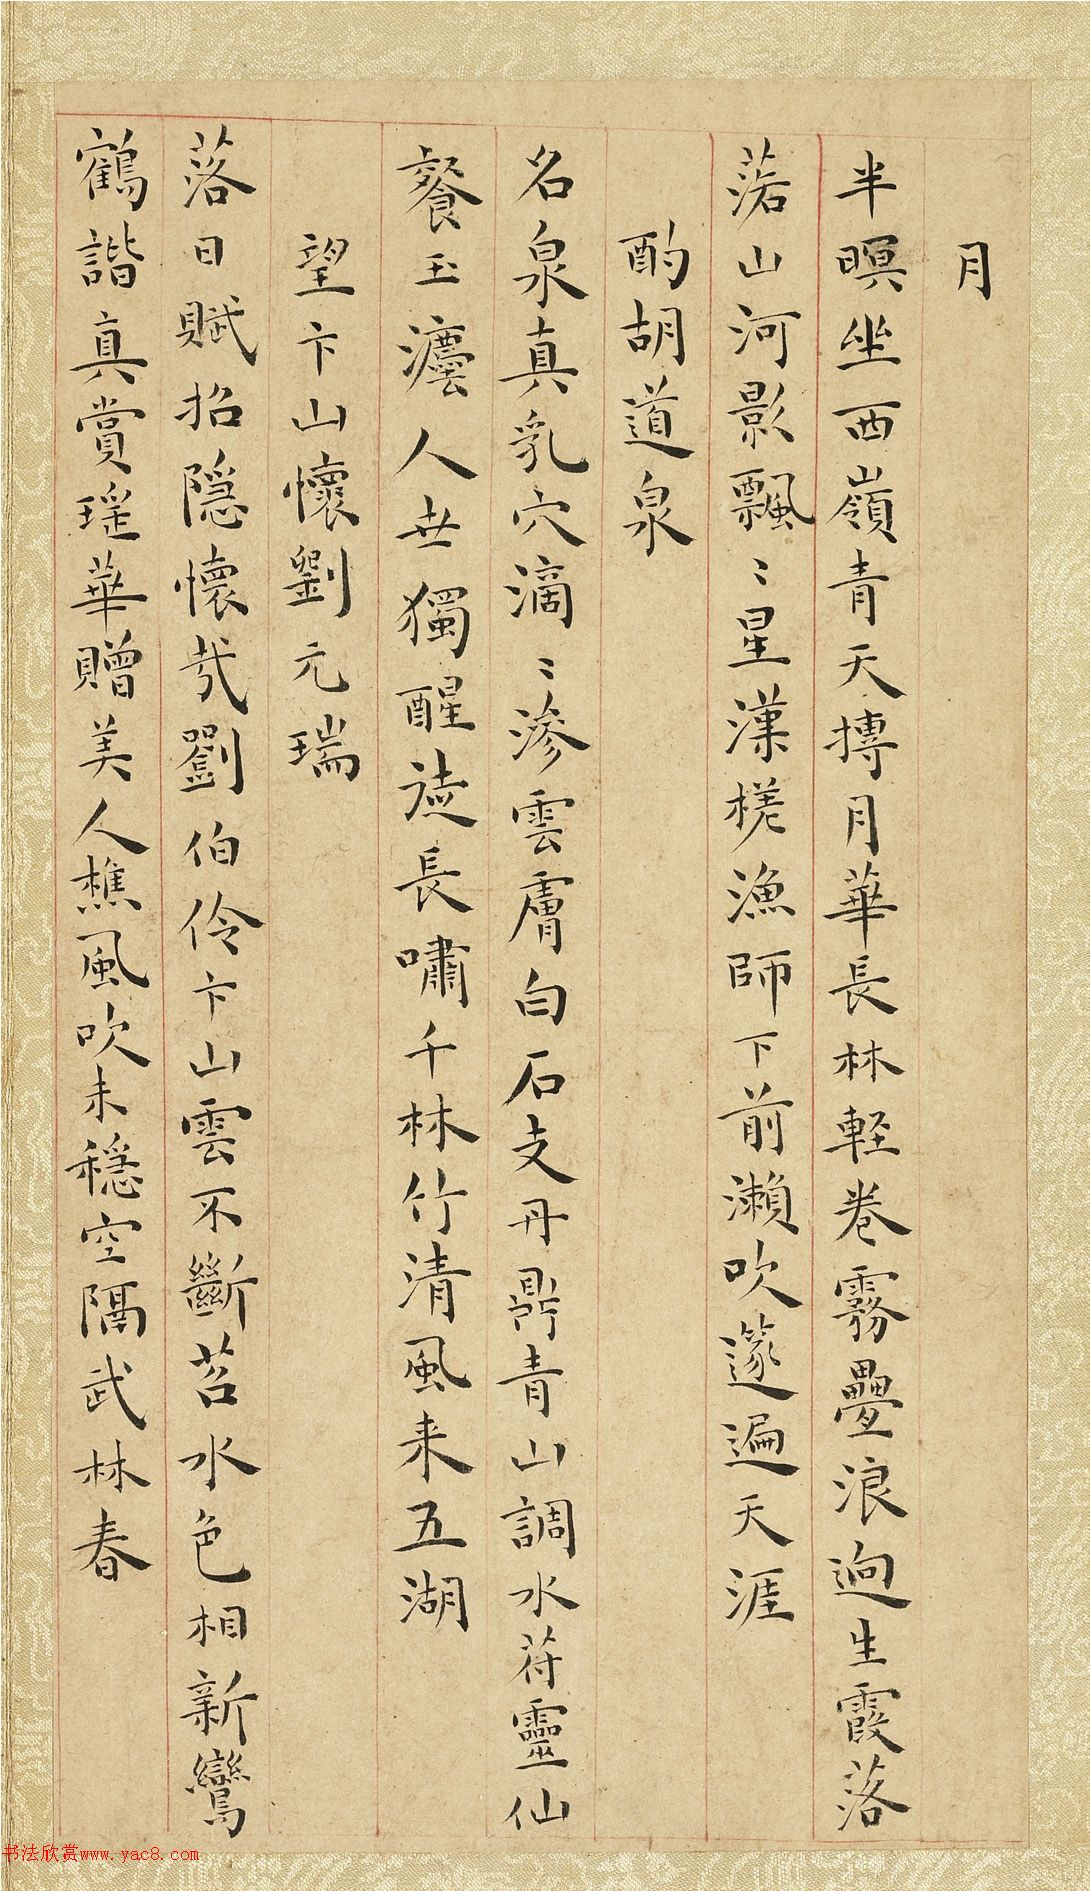 月
半暝坐西嶺青天摶月華長林輕卷霧疊浪迥生霞落
落山河影飄〻星漢槎漁師下前瀨吹篴遍天涯
酌胡道泉
名泉真乳穴滴〻滲雲膚白石支丹鼎青山調水苻靈仙
餐玉瀣人世獨醒徒長嘯千林竹清風来五湖
望卞山懷劉元瑞
落日賦招隱懷哉劉伯伶卞山雲不斷苕水色相新鸞
鶴諧真賞瑤華贈美人樵風吹未穩空隔武林春
书法欣赏www.yac8.com